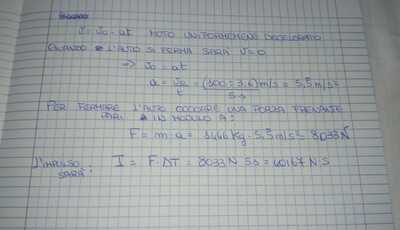 V = V₀ - at MOTO UNIFORMEMENE DECELERATO
QUANDO L'AUTO SI FERMA SARÀ V=0
⇒ V₀ = at
a = V₀/t = (100 : 3,6) m/s / 5 s = 5,5 m/s²
PER FERMARE L'AUTO OCCORRE UNA FORZA FRENANTE
PARI IN MODULO A:
F = m·a = 1446 Kg · 5,5 m/s² = 8033 N
L'IMPULSO SARÀ: I = F·ΔT = 8033 N · 5 s = 40167 N·S